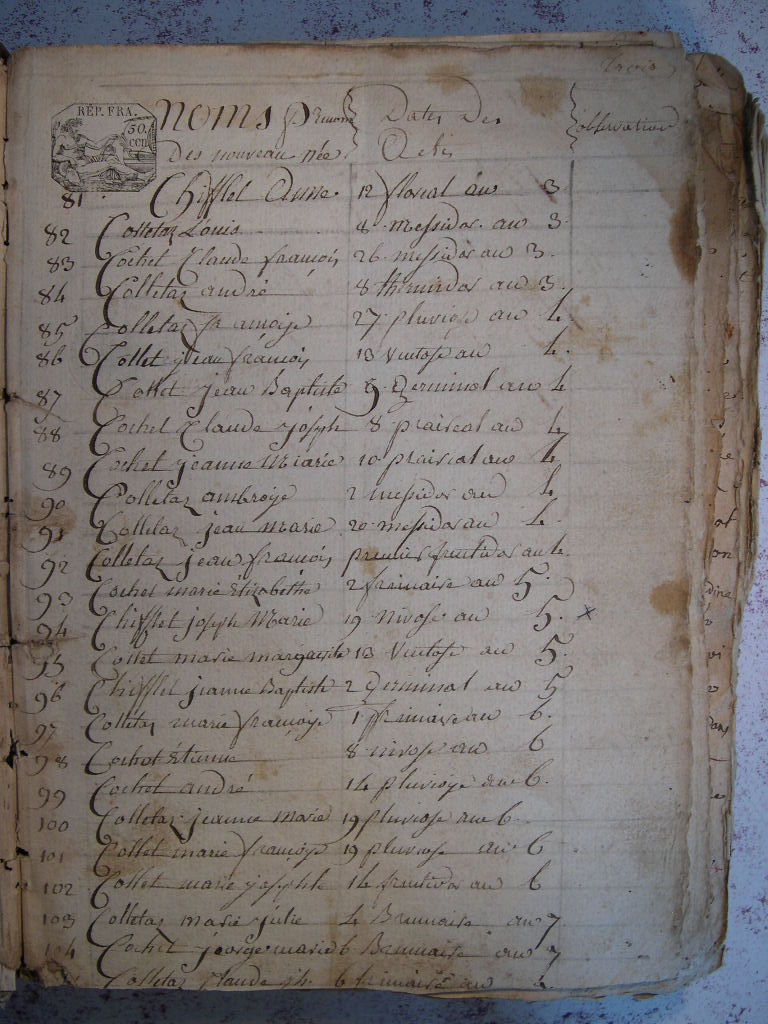 trois
RÉP. FRA.
50.
cen
Noms prenoms Dates Des observations
Des nouveau née Actes
81 Chifflet Anne 12 floreal an 3
82 Colletaz Louis 8 messidor an 3.
83 Cochet Claude françois 26 messidor an 3.
84 Colletaz andré 8 thermidor an 3.
85 Colletaz françoise 27 pluviose an 4.
86 Collet jean françois 13 Ventose an 4.
87 Collet jean Baptiste 9 Germinal an 4
88 Cochet Claude joseph 8 prairial an 4
89 Cochet jeanne Marie 10 prairial an 4
90 Colletaz ambroise 2 messidor an 4.
91 Colletaz jean marie 20 messidor an 4.
92 Colletaz jean françois premier fructidor an 4.
93 Cochet marie Elizabethe 2 frimaire an 5.
94 Chifflet joseph Marie 19 Nivose an 5. x
95 Collet marie marguerite 13 Ventose an 5.
96 Chifflet jeanne Baptiste 2 Germinal an 5
97 Colletaz marie françoise 1 frimaire an 6.
98 Cochet Étienne 8 nivose an 6
99 Cochet andré 14 pluviose an 6.
100 Colletaz jeanne marie 19 pluviose an 6.
101 Collet marie françoise 19 pluviose an 6
102 Collet marie josephte 14 fructidor an 6
103 Colletaz marie julie 4 Brumaire an 7
104 Cochet george marie 6 Brumaire an 7
Colletaz Claude jh. 6 frimaire an